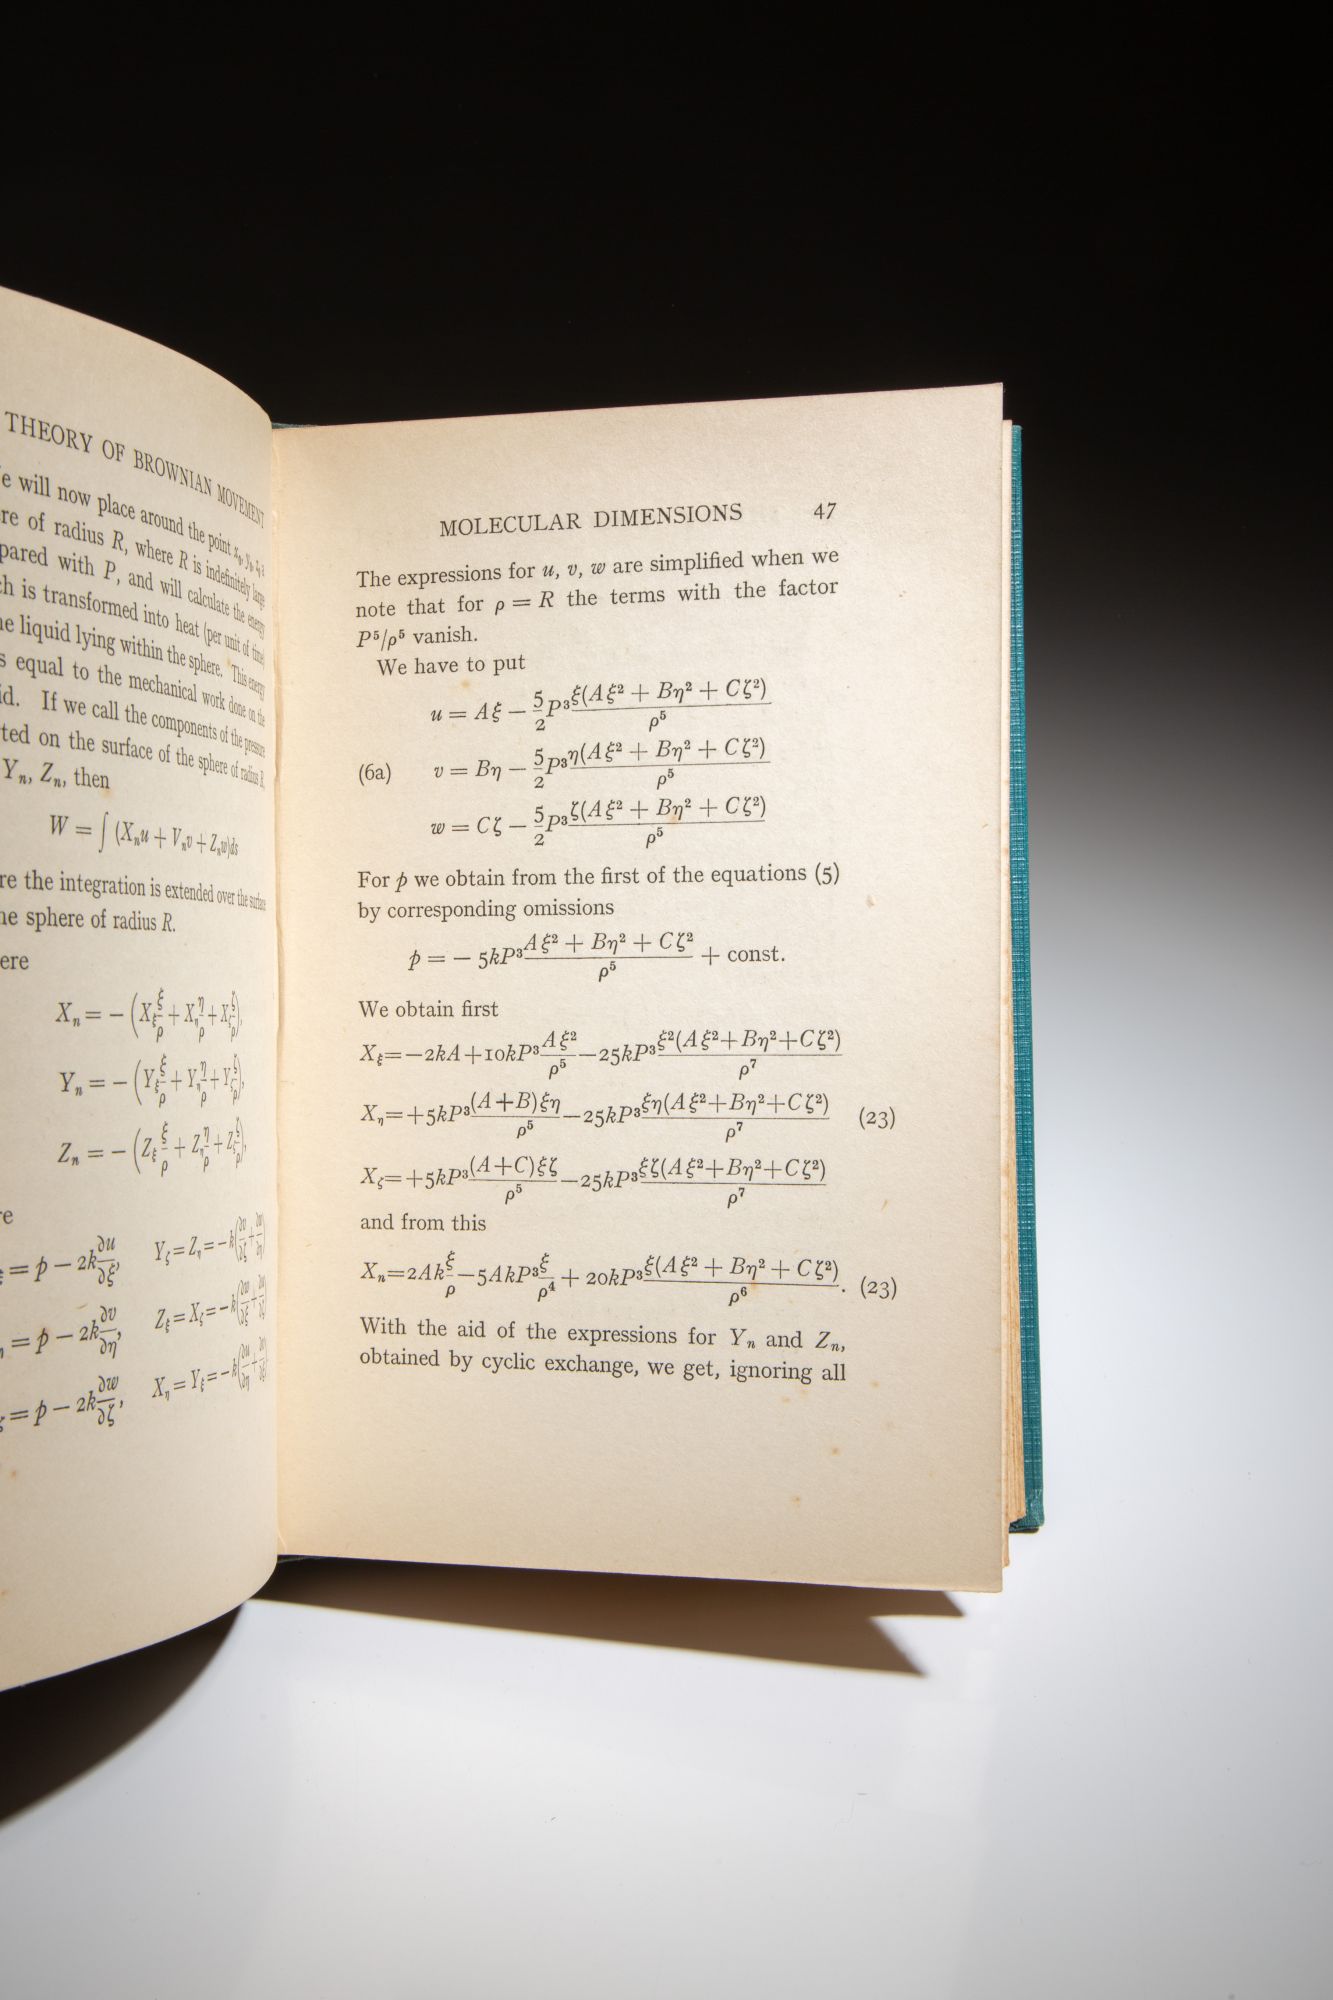 THEORY OF BROWNIAN MOVEMENT
e will now place around the point x₀, y₀, z₀ a
re of radius R, where R is indefinitely large
pared with P, and will calculate the energy
ch is transformed into heat (per unit of time)
he liquid lying within the sphere. This energy
s equal to the mechanical work done on the
id. If we call the components of the pressure
ted on the surface of the sphere of radius R,
Yₙ, Zₙ, then
W = ∫ (Xₙu + Vₙv + Zₙw)ds
re the integration is extended over the surface
he sphere of radius R.
ere
Xₙ = − (X_ξ ξ/ρ + X_η η/ρ + X_ζ ζ/ρ),
Yₙ = − (Y_ξ ξ/ρ + Y_η η/ρ + Y_ζ ζ/ρ),
Zₙ = − (Z_ξ ξ/ρ + Z_η η/ρ + Z_ζ ζ/ρ),
re
ξ = p − 2k ∂u/∂ξ, Y_ζ = Z_η = −k(∂v/∂ζ + ∂w/∂η)
η = p − 2k ∂v/∂η, Z_ξ = X_ζ = −k
ζ = p − 2k ∂w/∂ζ, X_η = Y_ξ = −k
MOLECULAR DIMENSIONS 47
The expressions for u, v, w are simplified when we
note that for ρ = R the terms with the factor
P⁵/ρ⁵ vanish.
We have to put
u = Aξ − 5/2 P³ ξ(Aξ² + Bη² + Cζ²)/ρ⁵
(6a) v = Bη − 5/2 P³ η(Aξ² + Bη² + Cζ²)/ρ⁵
w = Cζ − 5/2 P³ ζ(Aξ² + Bη² + Cζ²)/ρ⁵
For p we obtain from the first of the equations (5)
by corresponding omissions
p = − 5kP³ (Aξ² + Bη² + Cζ²)/ρ⁵ + const.
We obtain first
X_ξ = −2kA + 10kP³ Aξ²/ρ⁵ − 25kP³ ξ²(Aξ² + Bη² + Cζ²)/ρ⁷
X_η = +5kP³ (A + B)ξη/ρ⁵ − 25kP³ ξη(Aξ² + Bη² + Cζ²)/ρ⁷ (23)
X_ζ = +5kP³ (A + C)ξζ/ρ⁵ − 25kP³ ξζ(Aξ² + Bη² + Cζ²)/ρ⁷
and from this
Xₙ = 2Ak ξ/ρ − 5AkP³ ξ/ρ⁴ + 20kP³ ξ(Aξ² + Bη² + Cζ²)/ρ⁶. (23)
With the aid of the expressions for Yₙ and Zₙ,
obtained by cyclic exchange, we get, ignoring all